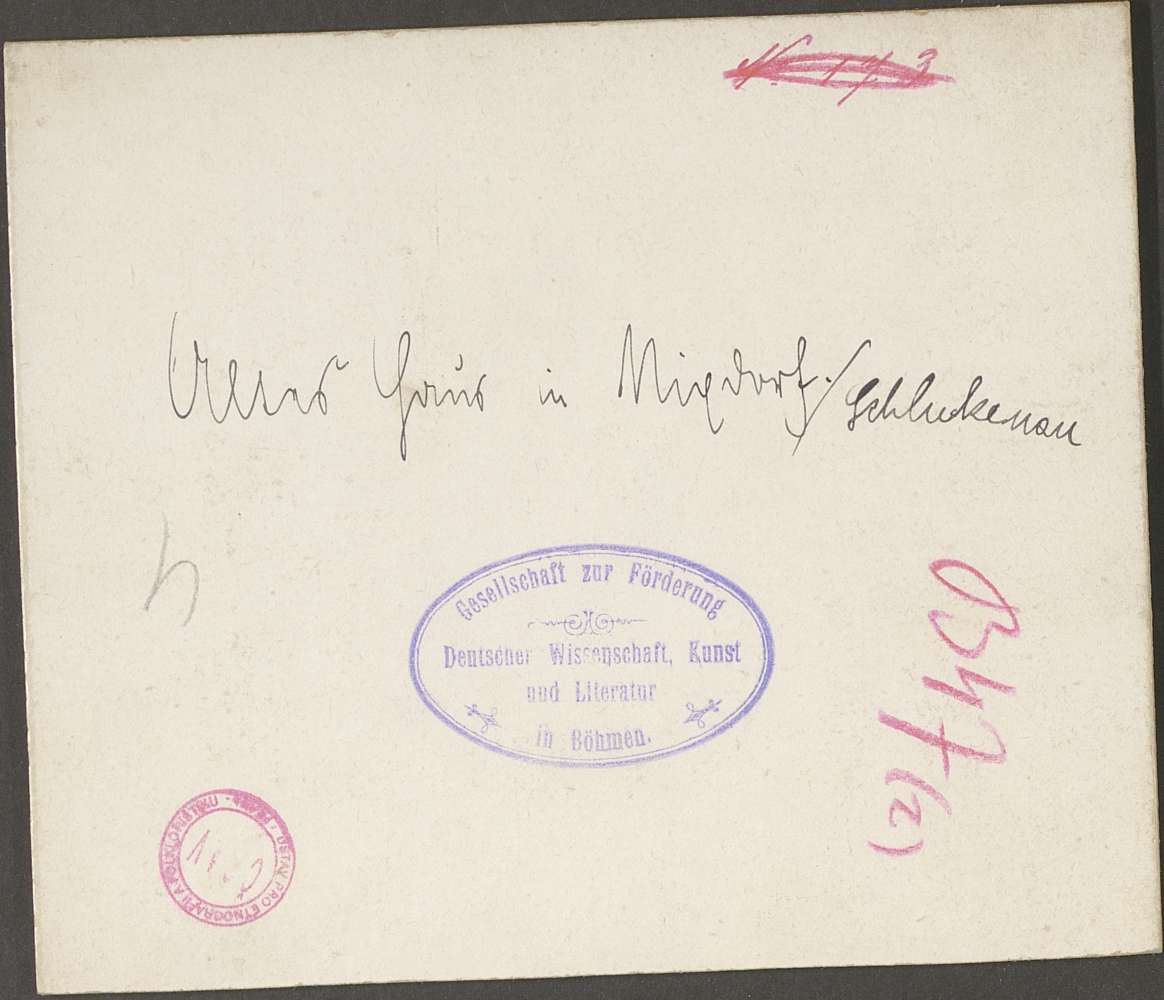 Altes Haus in Nixdorf./Schluckenau
Gesellschaft zur Förderung
Deutscher Wissenschaft, Kunst
und Literatur
in Böhmen.
B47(2)
ÚSTAV PRO ETNOGRAFII A FOLKLORISTIKU